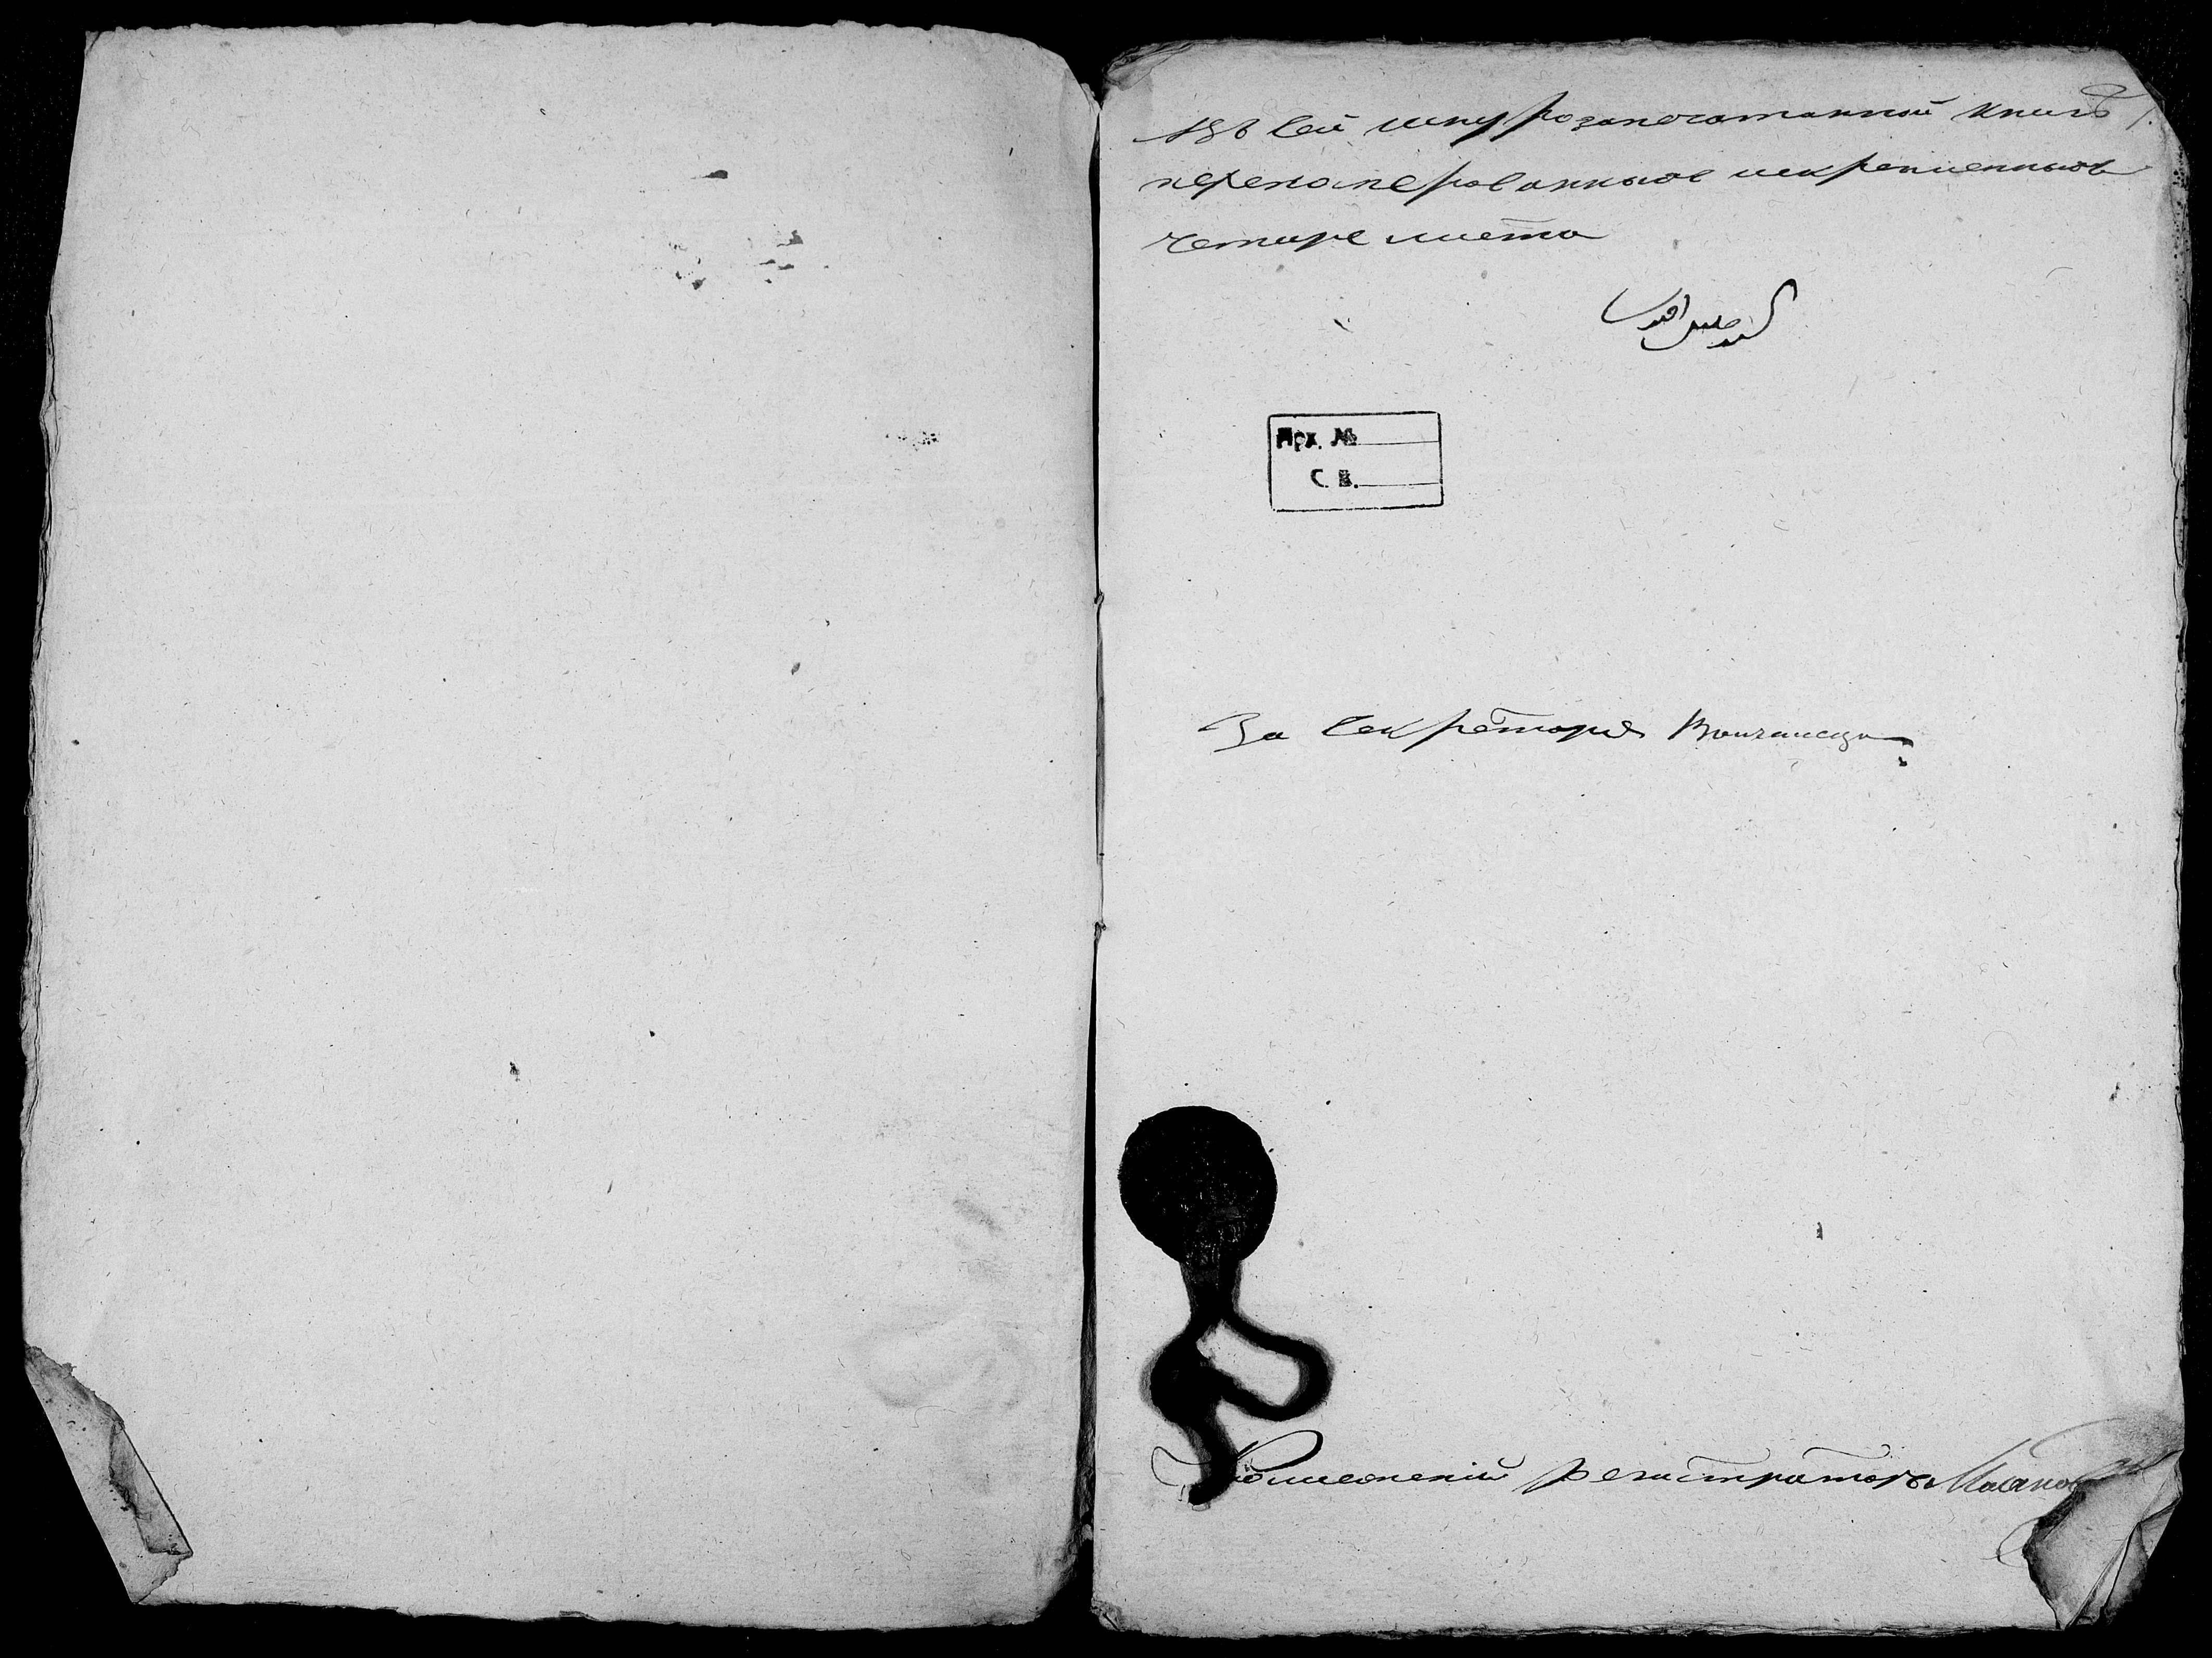 Въ сей шнурозапечатанной книгѣ
перенумерованныхъ искрепленныхъ
четыре листа
Арх. №
С. В.
За Секретаря
Коллежскій регистраторъ